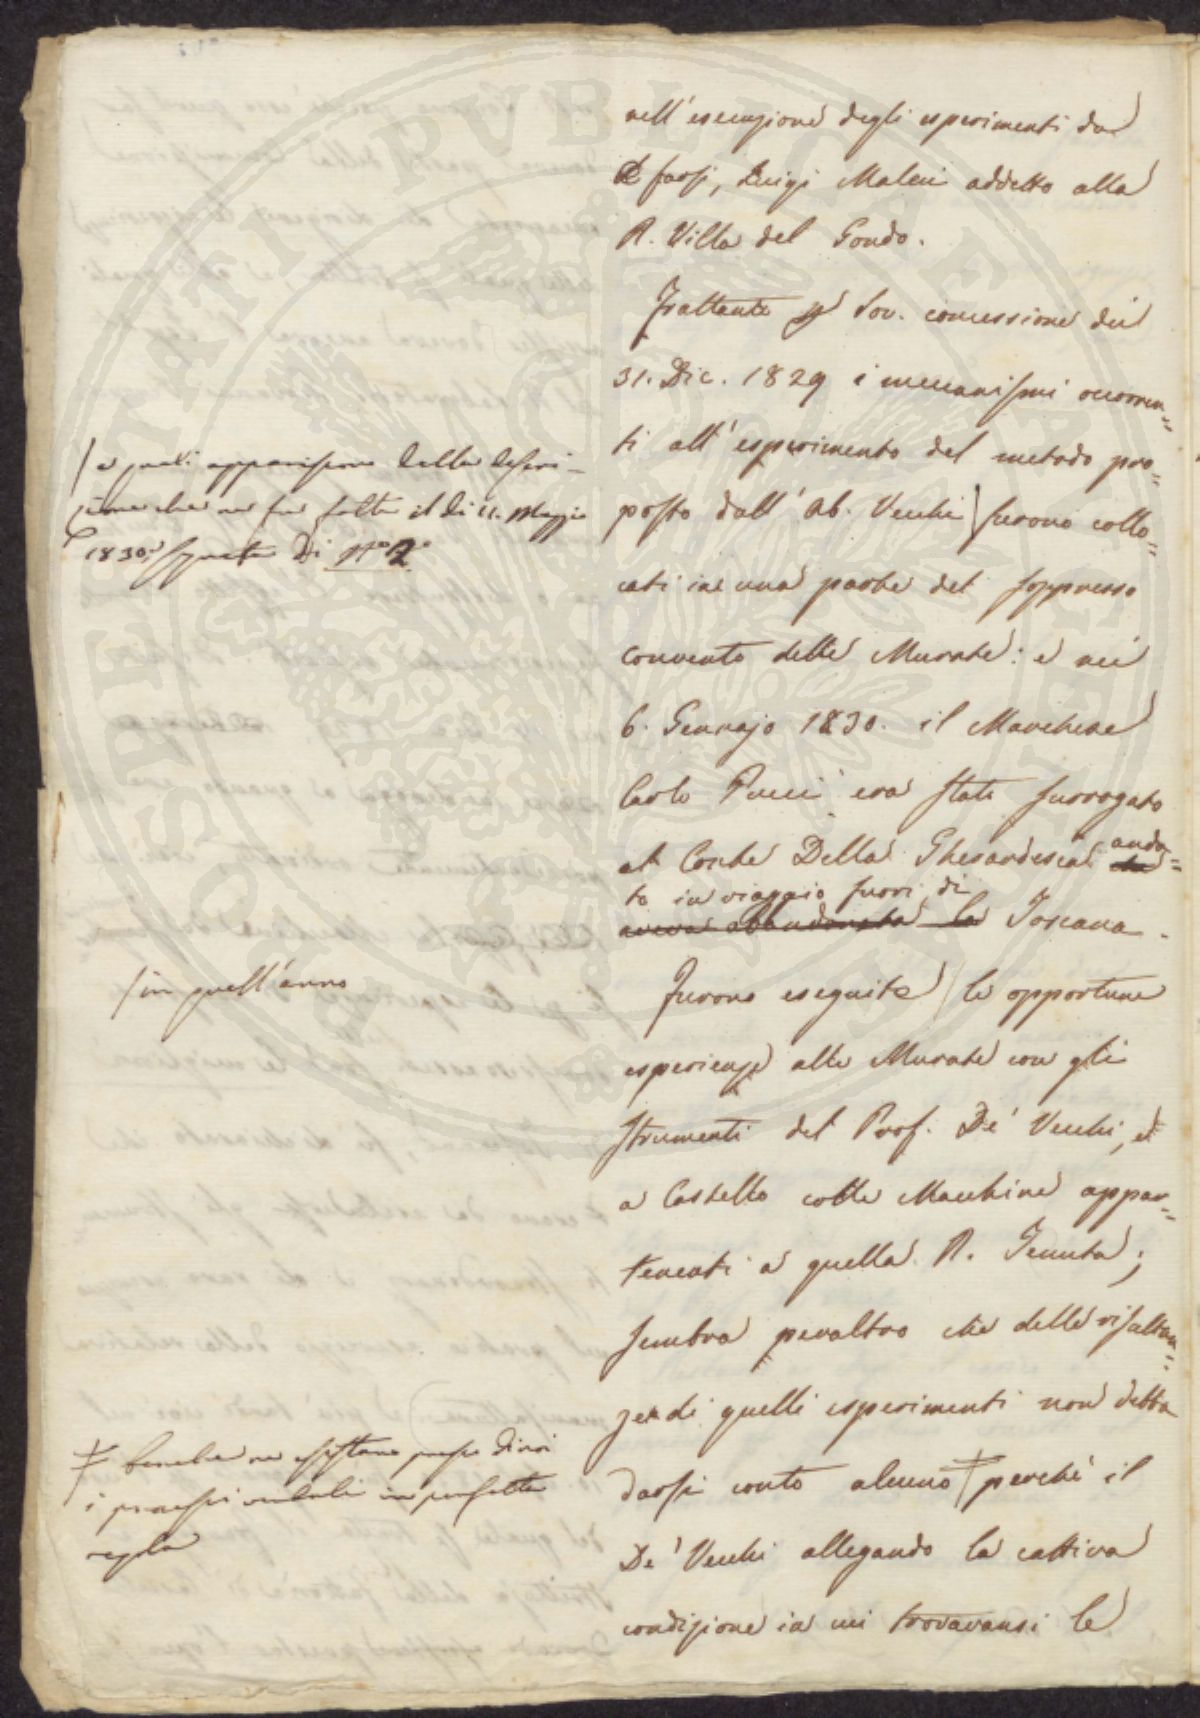 nell'esecuzione degli esperimenti da
farsi, Luigi Maleni addetto alla
R. Villa del Gondo.
Frattanto per Sov. concessione dei
31. Dic. 1829 i meccanismi occorren=
ti all'esperimento del metodo pro=
posto dall'Ab. Vecchi furono collo=
cati in una parte del soppresso
Convento delle Murate: e nei
6. Gennajo 1830. il Marchese
Carlo Pucci era stato surrogato
al Conte Della Gherardesca anda=
to in viaggio fuori di
aveva abbandonata la Toscana.
Furono eseguite le opportune
esperienze alle Murate con gli
strumenti del Prof. De' Vecchi, e
a Castello colle Macchine appar=
tenenti a quella R. Tenuta;
sembra peraltro che delle risultan=
ze di quelli esperimenti non debba
darsi conto alcuno perchè il
De' Vecchi allegando la cattiva
condizione in cui trovavansi le
e quali appariscono dalla descri=
zione che ne fu fatta il dì 11. Maggio
1830. segnata Di N° 2°
in quell'anno
benche ne esistano presso di noi
i processi verbali in perfetta
regola
PVBLICAE